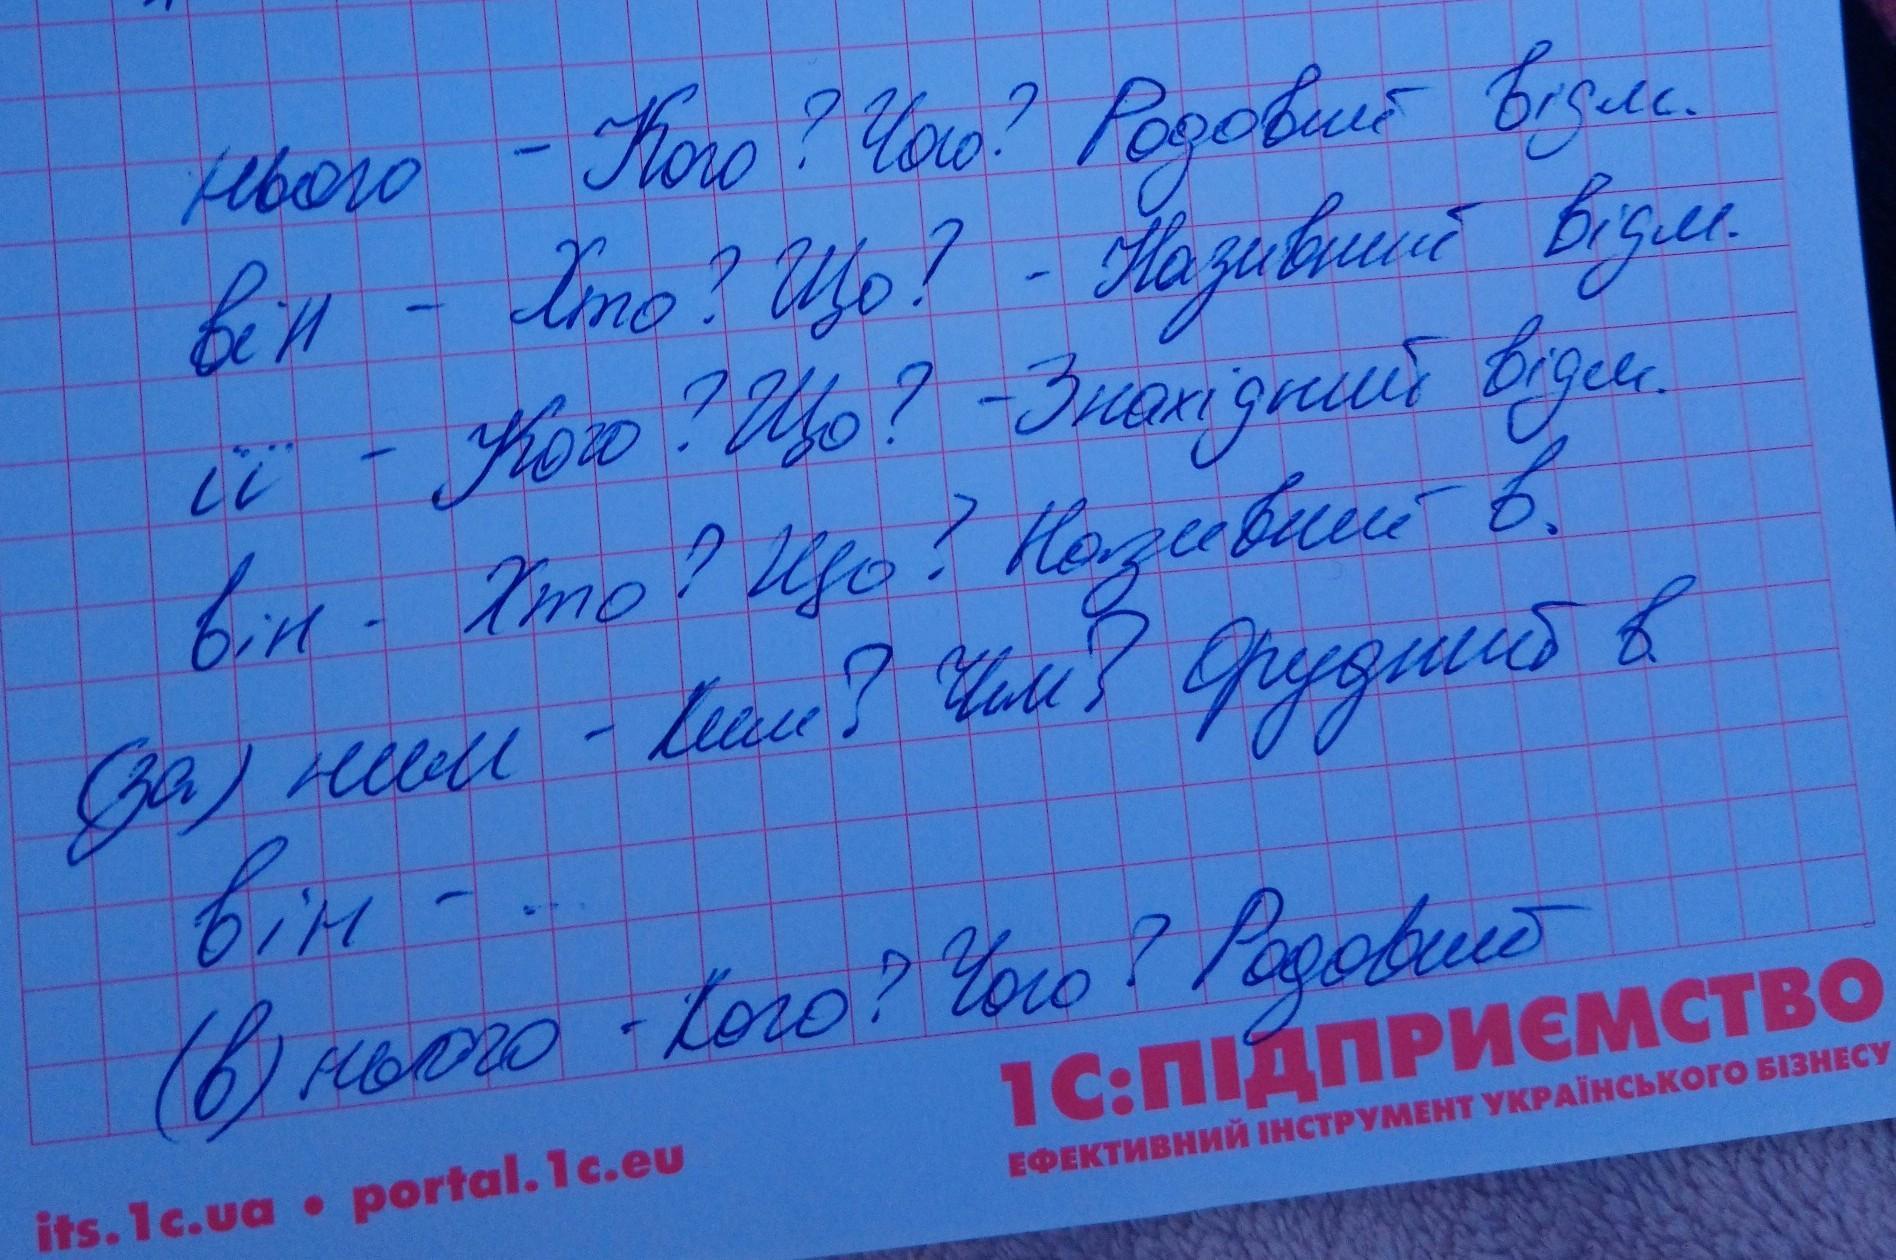 нього - Кого? Чого? Родовий відм.
він - Хто? Що? - Називний відм.
її - Кого? Що? - Знахідний відм.
він - Хто? Що? Називний в.
(за) ним - Ким? Чим? Орудний в.
він - ...
(в) нього - Кого? Чого? Родовий
1С:ПІДПРИЄМСТВО
ЕФЕКТИВНИЙ ІНСТРУМЕНТ УКРАЇНСЬКОГО БІЗНЕСУ
its.1c.ua • portal.1c.eu